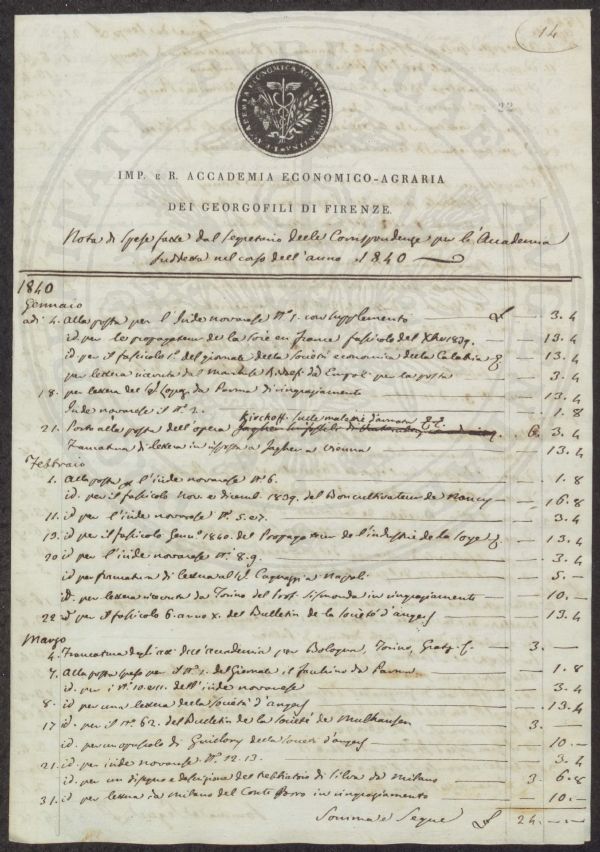 14
22
IMP. E R. ACCADEMIA ECONOMICO-AGRARIA
DEI GEORGOFILI DI FIRENZE.
Nota di spese fatte dal Segretario delle Corrispondenze per l'Accademia
suddetta nel corso dell'anno 1840
1840
Gennaio
adi 4. Alla posta per l' Inde novarese Nº 1. con supplemento £ 3. 4
id. per le propagateur de la soie en France fascicolo del Xbre 1839. 13. 4
id per il fascicolo 1º del giornale della società economica della Calabria 13. 4
per lettera ricevuta del Marchese Ridolfi da Empoli per la posta 3. 4
18. per lettera del da Parma di ringraziamento 13. 4
Inde novarese il nº 2. 1. 8
Bischoff sulle malattie
21. Porto alla posta dell'opera 3. 4
Francatura di lettera in risposta a Vienna 13. 4
Febbraio
1. Alla posta l'inde novarese nº 6. 1. 8
id. per il fascicolo nov. e dicemb. 1839. del Bon cultivateur de Nancy 16. 8
11. id per l'inde novarese nº 5. e 7. 3. 4
13. id per il fascicolo Genn. 1840. del Propagateur de l'industrie de la soye 13. 4
20 id per l'inde novarese Nº 8. 9. 3. 4
id per francatura di lettera al a Napoli 5. –
id. per lettera ricevuta da Torino del Prof. Sismonda in ringraziamento 10. –
22 id per il fascicolo 6. anno X. del Bulletin de la Société d'angers 13. 4
Marzo
4. Francatura degli atti dell'accademia per Bologna, Torino, 3. –
7. Alla posta spese per il nº 1. del Giornale il facchino da Parma 1. 8
id. per i nº 10. e 11. dell'inde novarese 3. 4
8. id per una lettera della società d'angers 13. 4
17 id. per il nº 62. del Bulletin de la Société de Mulhausen 3. –
id. per un opuscolo di Guillory della società d'angers 10. –
21. id per inde novarese Nº 12. 13. 3. 4
id. per un disegno e descrizione del trebbiatoio di da Milano 3. 6. 8
31. id per lettera in Milano del Conte in ringraziamento 10. –
Somma e Segue £ 24. – –